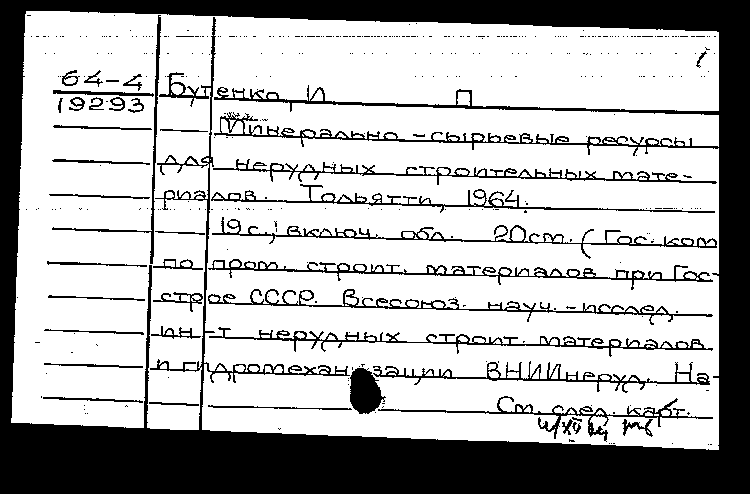 1
64-4 Бутенко, И П
19293
Минерально-сырьевые ресурсы
для нерудных строительных мате-
риалов. Тольятти, 1964.
19 с., включ. обл. 20 см. (Гос. ком
по пром. строит. материалов при Гос-
строе СССР. Всесоюз. науч.-исслед.
ин-т нерудных строит. материалов
и гидромеханизации ВНИИнеруд. На-
См. след. карт.